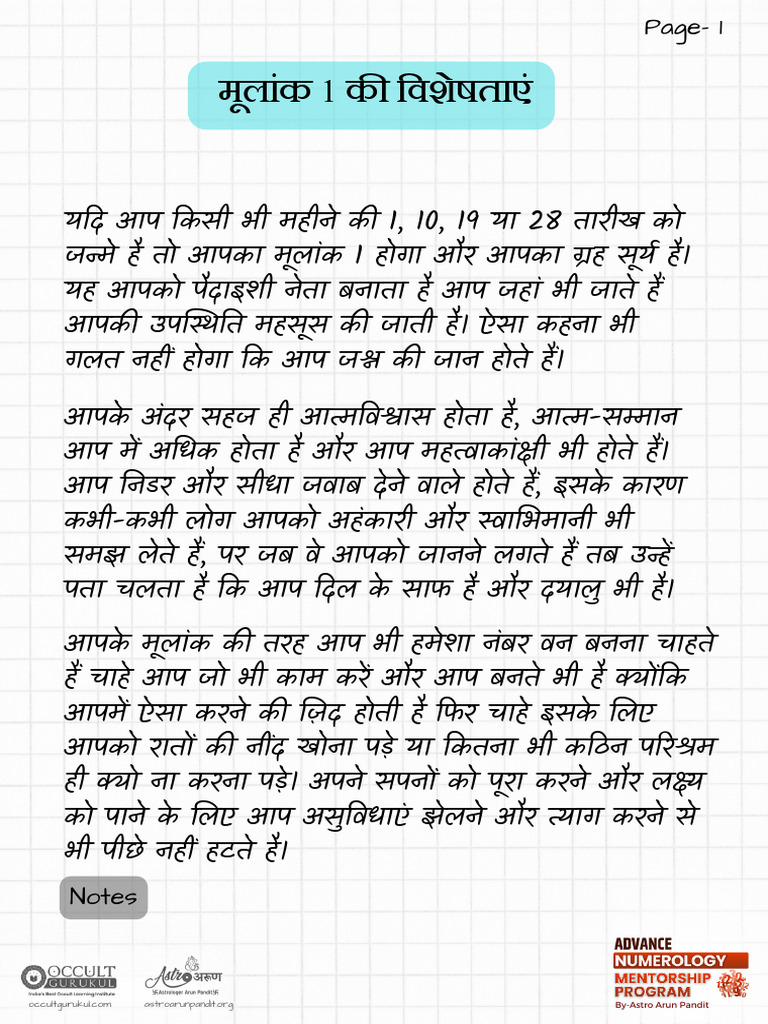 Page- 1
मूलांक 1 की विशेषताएं
यदि आप किसी भी महीने की 1, 10, 19 या 28 तारीख को
जन्मे है तो आपका मूलांक 1 होगा और आपका ग्रह सूर्य है।
यह आपको पैदाइशी नेता बनाता है आप जहां भी जाते हैं
आपकी उपस्थिति महसूस की जाती है। ऐसा कहना भी
गलत नहीं होगा कि आप जश्न की जान होते हैं।
आपके अंदर सहज ही आत्मविश्वास होता है, आत्म-सम्मान
आप में अधिक होता है और आप महत्वाकांक्षी भी होते हैं।
आप निडर और सीधा जवाब देने वाले होते हैं, इसके कारण
कभी-कभी लोग आपको अहंकारी और स्वाभिमानी भी
समझ लेते हैं, पर जब वे आपको जानने लगते हैं तब उन्हें
पता चलता है कि आप दिल के साफ है और दयालु भी है।
आपके मूलांक की तरह आप भी हमेशा नंबर वन बनना चाहते
हैं चाहे आप जो भी काम करें और आप बनते भी है क्योंकि
आपमें ऐसा करने की ज़िद होती है फिर चाहे इसके लिए
आपको रातों की नींद खोना पड़े या कितना भी कठिन परिश्रम
ही क्यो ना करना पड़े। अपने सपनों को पूरा करने और लक्ष्य
को पाने के लिए आप असुविधाएं झेलने और त्याग करने से
भी पीछे नहीं हटते है।
Notes
OCCULT
GURUKUL
India's Best Occult Learning Institute
occultgurukul.com
Astro अरूण
卐Astrologer Arun Pandit卐
astroarunpandit.org
ADVANCE
NUMEROLOGY
MENTORSHIP
PROGRAM
By-Astro Arun Pandit